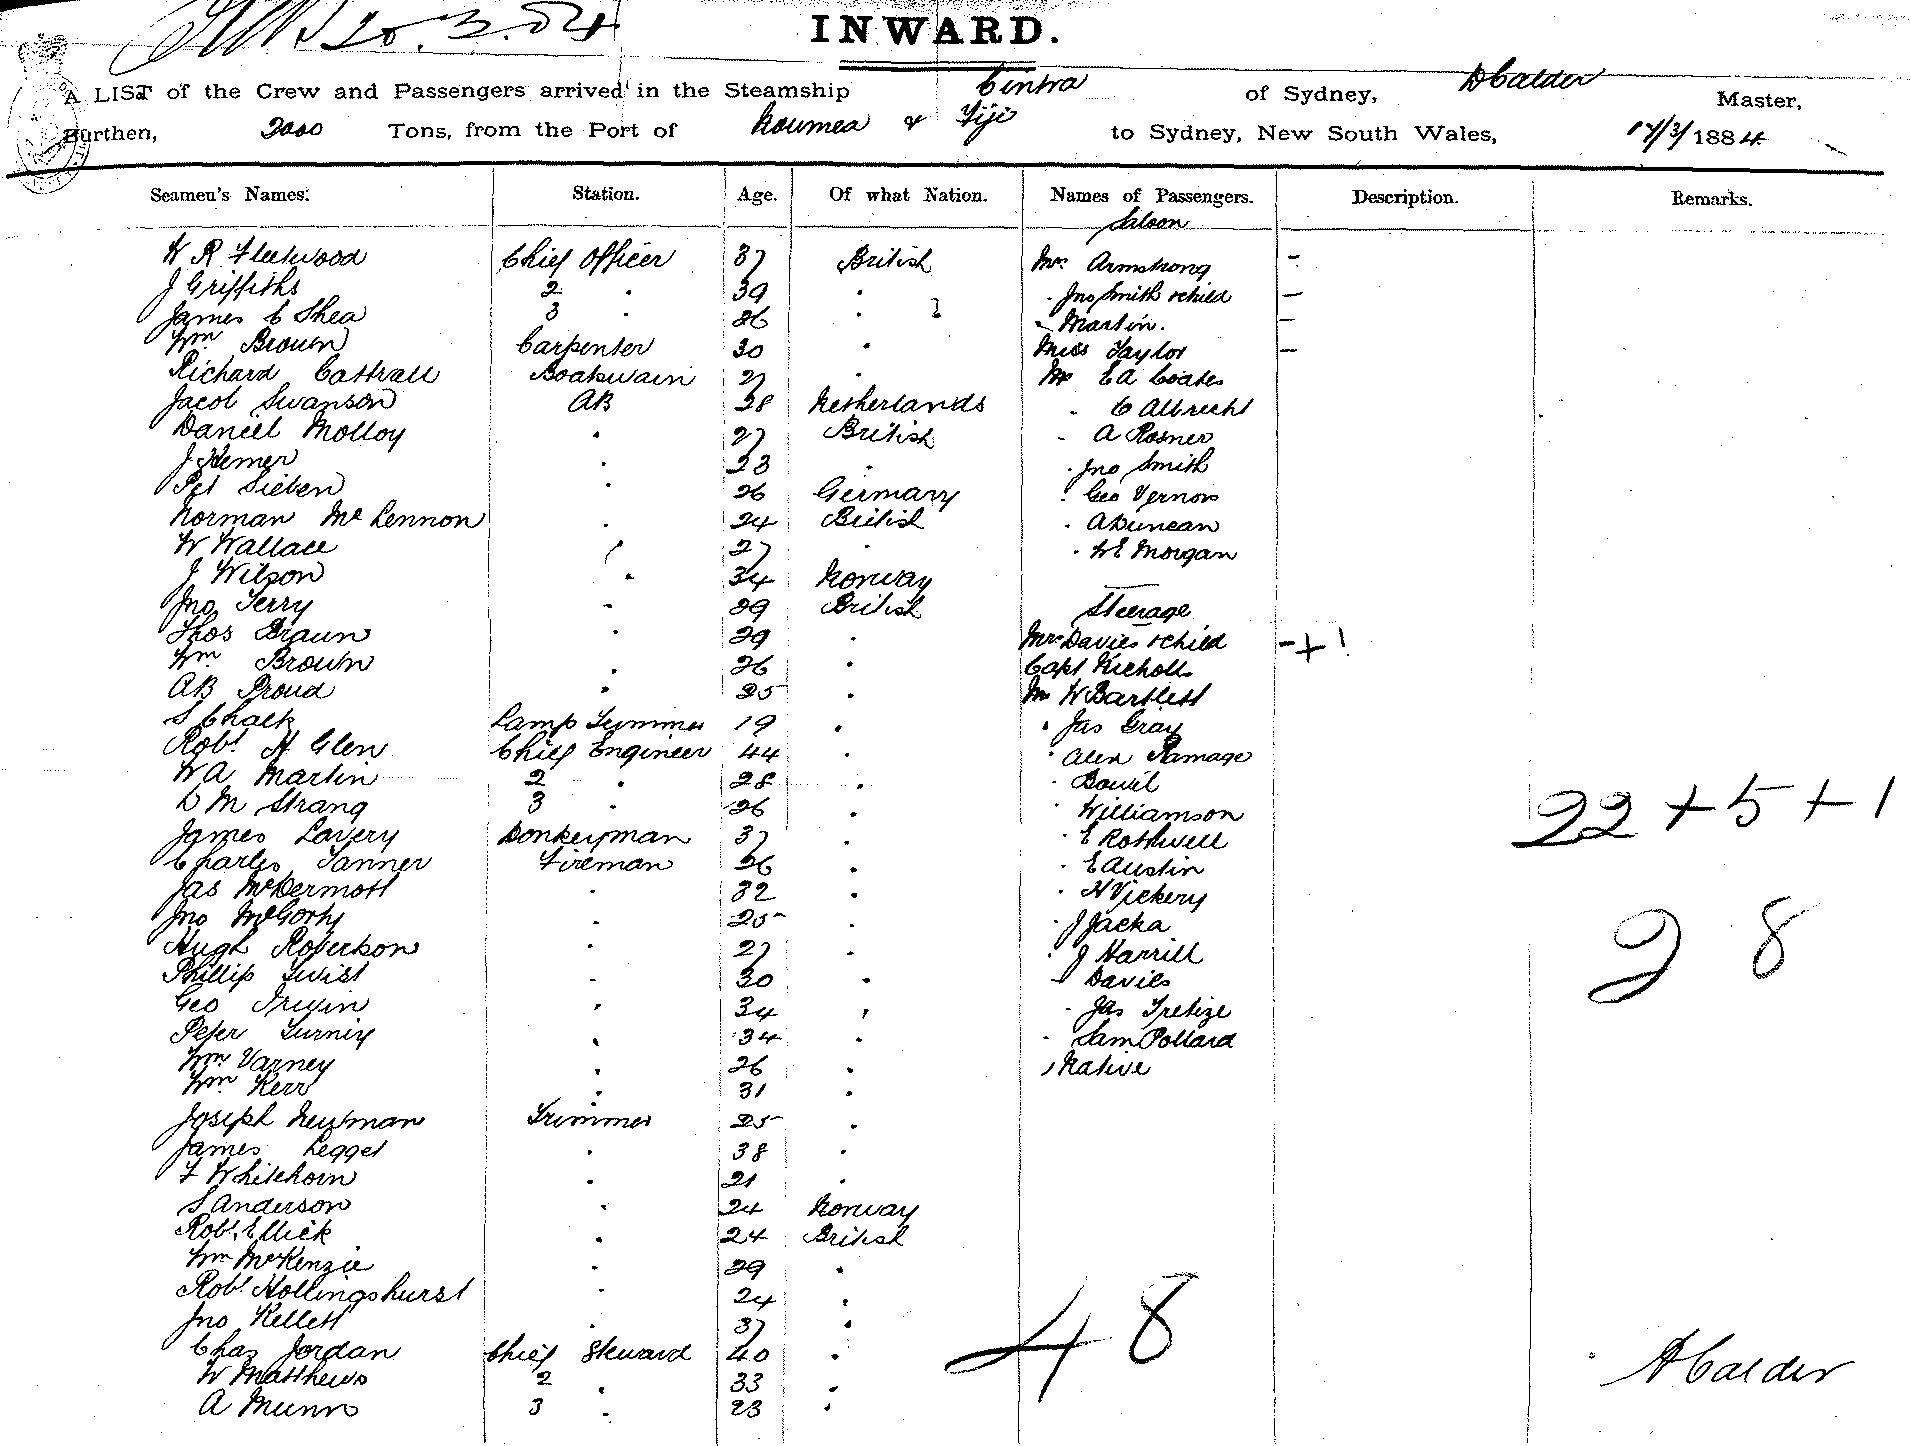 20.3.84
INWARD.
A LIST of the Crew and Passengers arrived in the Steamship Cintra of Sydney, D Calder Master,
Burthen, 2000 Tons, from the Port of Noumea & Fiji to Sydney, New South Wales, 17/3/1884
Seamen's Names. Station. Age. Of what Nation. Names of Passengers. Description. Remarks.
Saloon
H R Fleetwood Chief Officer 37 British Mrs Armstrong -
J Griffiths 2 " 39 " " Jno Smith & child -
James C Shea 3 " 26 " " Martin. -
Wm Brown Carpenter 30 " Miss Taylor -
Richard Cattrall Boatswain 27 " Mr E A Coates
Jacob Swanson AB 28 Netherlands " C Albrecht
Daniel Molloy " 27 British " A Rosner
J Hemer " 23 " " Jno Smith
Pet Sieben " 26 Germany " Geo Vernon
Norman McLennon " 24 British " A Duncan
W Wallace " 27 " " W E Morgan
J Wilson " 34 Norway
Jno Terry " 29 British Steerage
Thos Braun " 29 " Mrs Davies & child - + 1
Wm Brown " 26 " Capt Nicholls
AB Proud " 25 " Mr W Bartlett
S Chalk Lamp Trimmer 19 " " Jas Gray
Robt H Glen Chief Engineer 44 " " Alex Ramage
W A Martin 2 " 28 " "
D M Strang 3 " 26 " " Williamson 22 + 5 + 1
James Lavery Donkeyman 37 " " E Rothwell
Charles Tanner Fireman 26 " " E Austin
Jas McDermott " 32 " " H Vickery
Jno McGorty " 25 " " J Jacka 28
Hugh Robertson " 27 " " J Harrill
Phillip Twist " 30 " " Davies
Geo Irwin " 34 " " Jas Tretize
Peter " 34 " " Sam Pollard
Wm Varney " 26 " 1 Native
Wm Kerr " 31 "
Joseph Newman Trimmer 25 "
James Legget " 38 "
F Whitehorn " 21 "
S Anderson " 24 Norway
Robt Ellick " 24 British
Wm McKenzie " 29 "
Robt Hollingshurst " 24 "
Jno Kellett " 37 " 48
Chas Jordan Chief Steward 40 "
W Matthews 2 " 33 " D Calder
A Munro 3 " 23 "